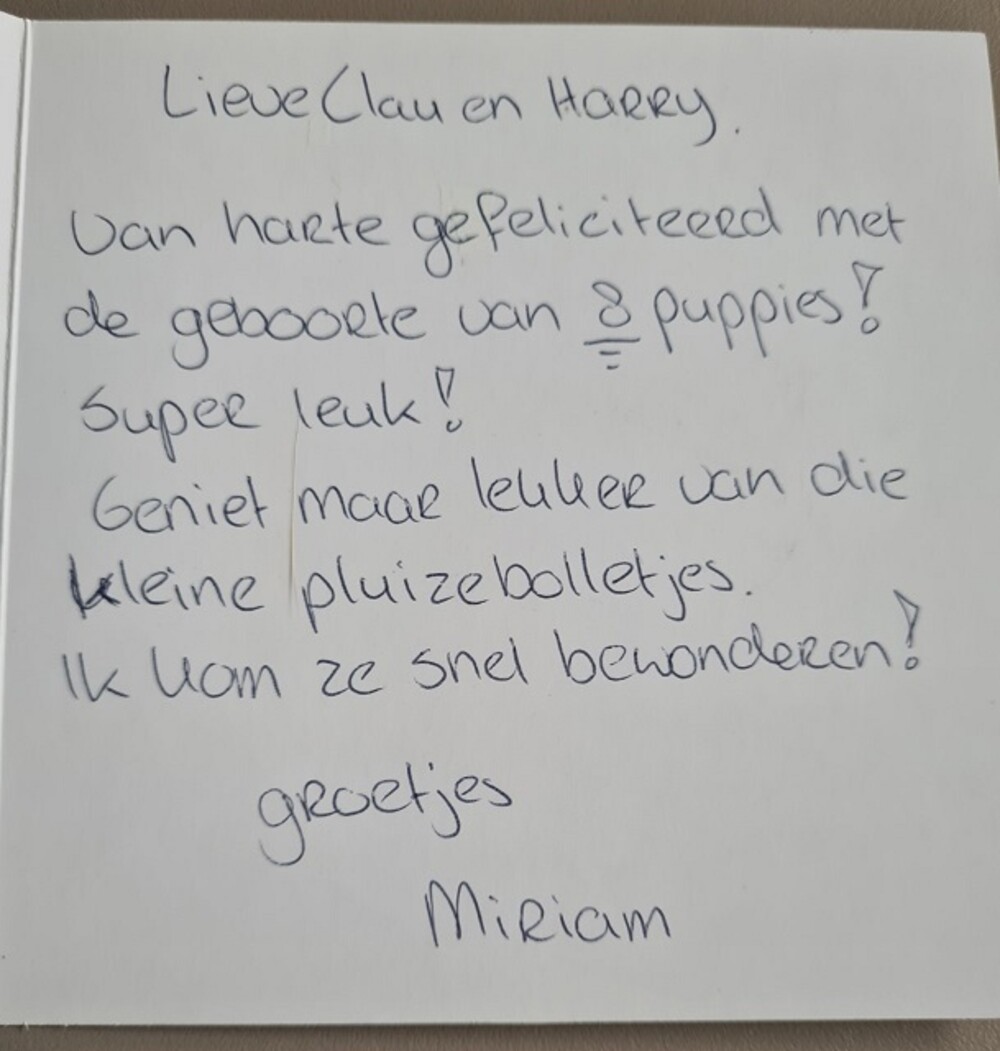 Lieve Clau en Harry.
Van harte gefeliciteerd met
de geboorte van 8 puppies!
Super leuk!
Geniet maar lekker van die
kleine pluizebolletjes.
Ik kom ze snel bewonderen!
groetjes
Miriam